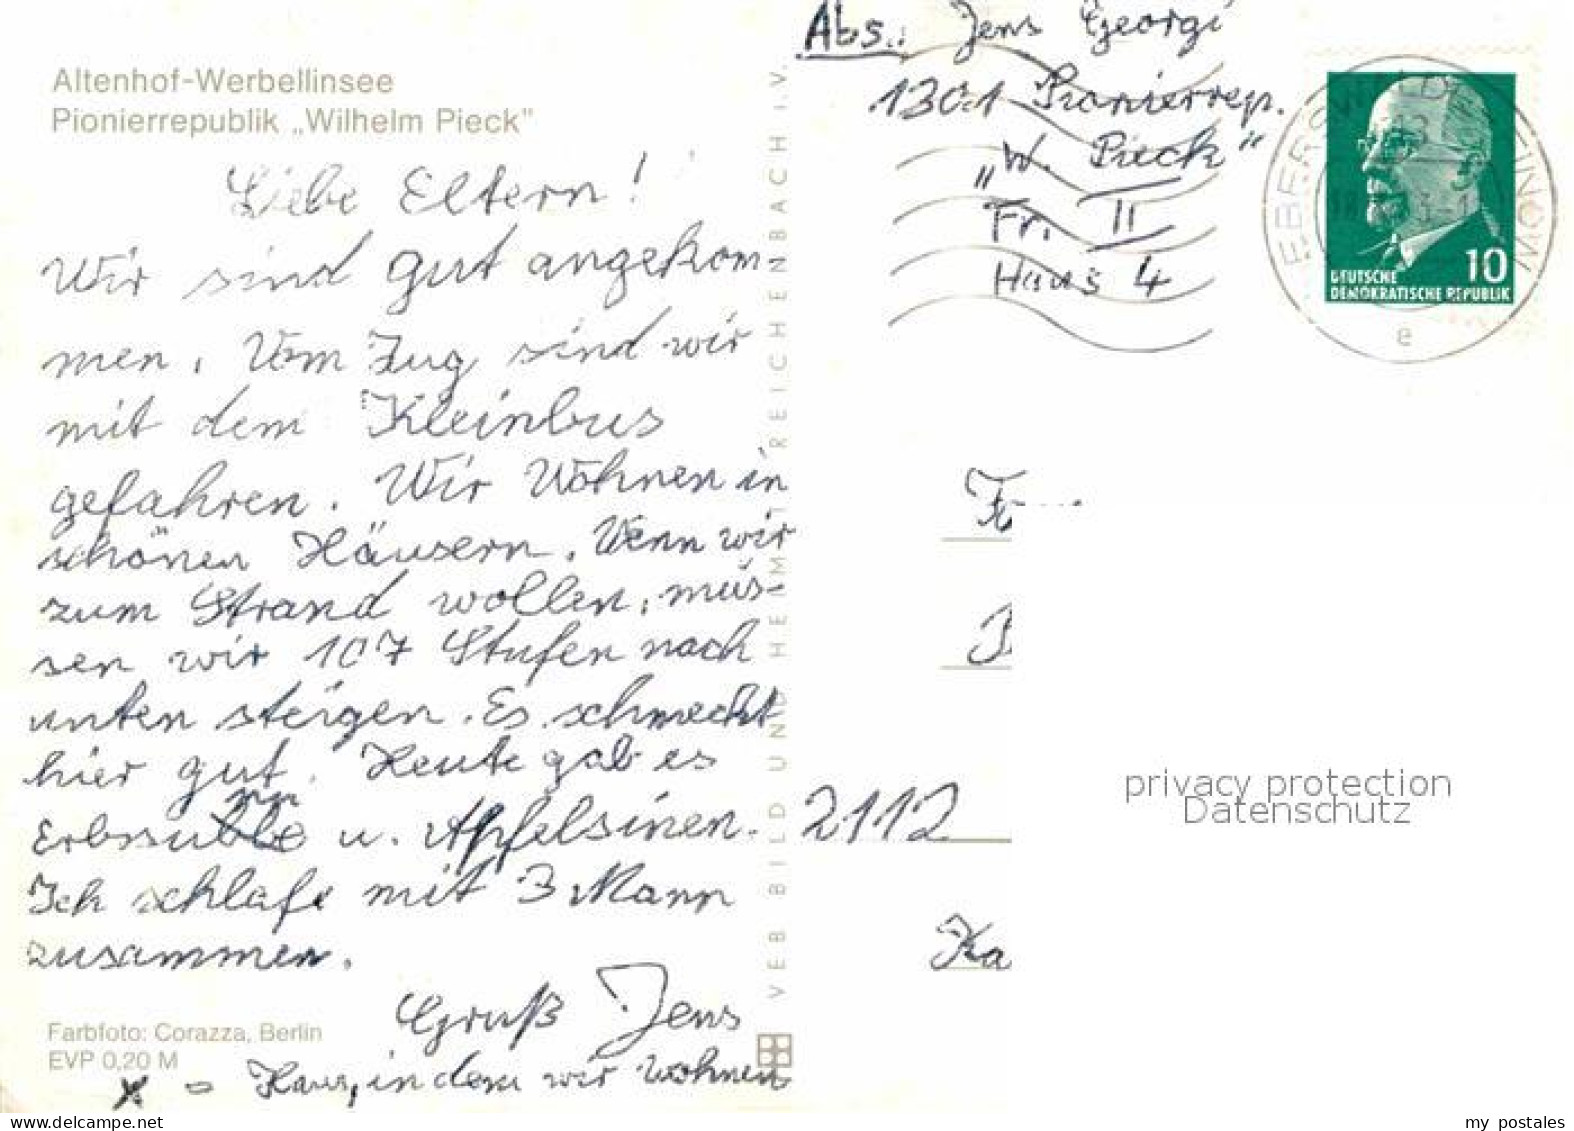 Altenhof-Werbellinsee
Pionierrepublik „Wilhelm Pieck"
Liebe Eltern!
Wir sind gut angekom-
men. Vom Zug sind wir
mit dem Kleinbus
gefahren. Wir Wohnen in
schönen Häusern. Wenn wir
zum Strand wollen, müs-
sen wir 107 Stufen nach
unten steigen. Es schmeckt
hier gut. Heute gab es
u. Apfelsinen.
Ich schlafe mit 3 Mann
zusammen.
Gruß Jens
x = Haus, in dem wir wohnen
Farbfoto: Corazza, Berlin
EVP 0,20 M
VEB BILD UND HEIMAT REICHENBACH I.V.
Abs.: Jens Georgi
1301 Pionierrep.
„W. Pieck"
Fr. II
Haus 4
EBERSWALDE-FINOW
e
10
DEUTSCHE
DEMOKRATISCHE REPUBLIK
2112
Ka
privacy protection
Datenschutz
my postales